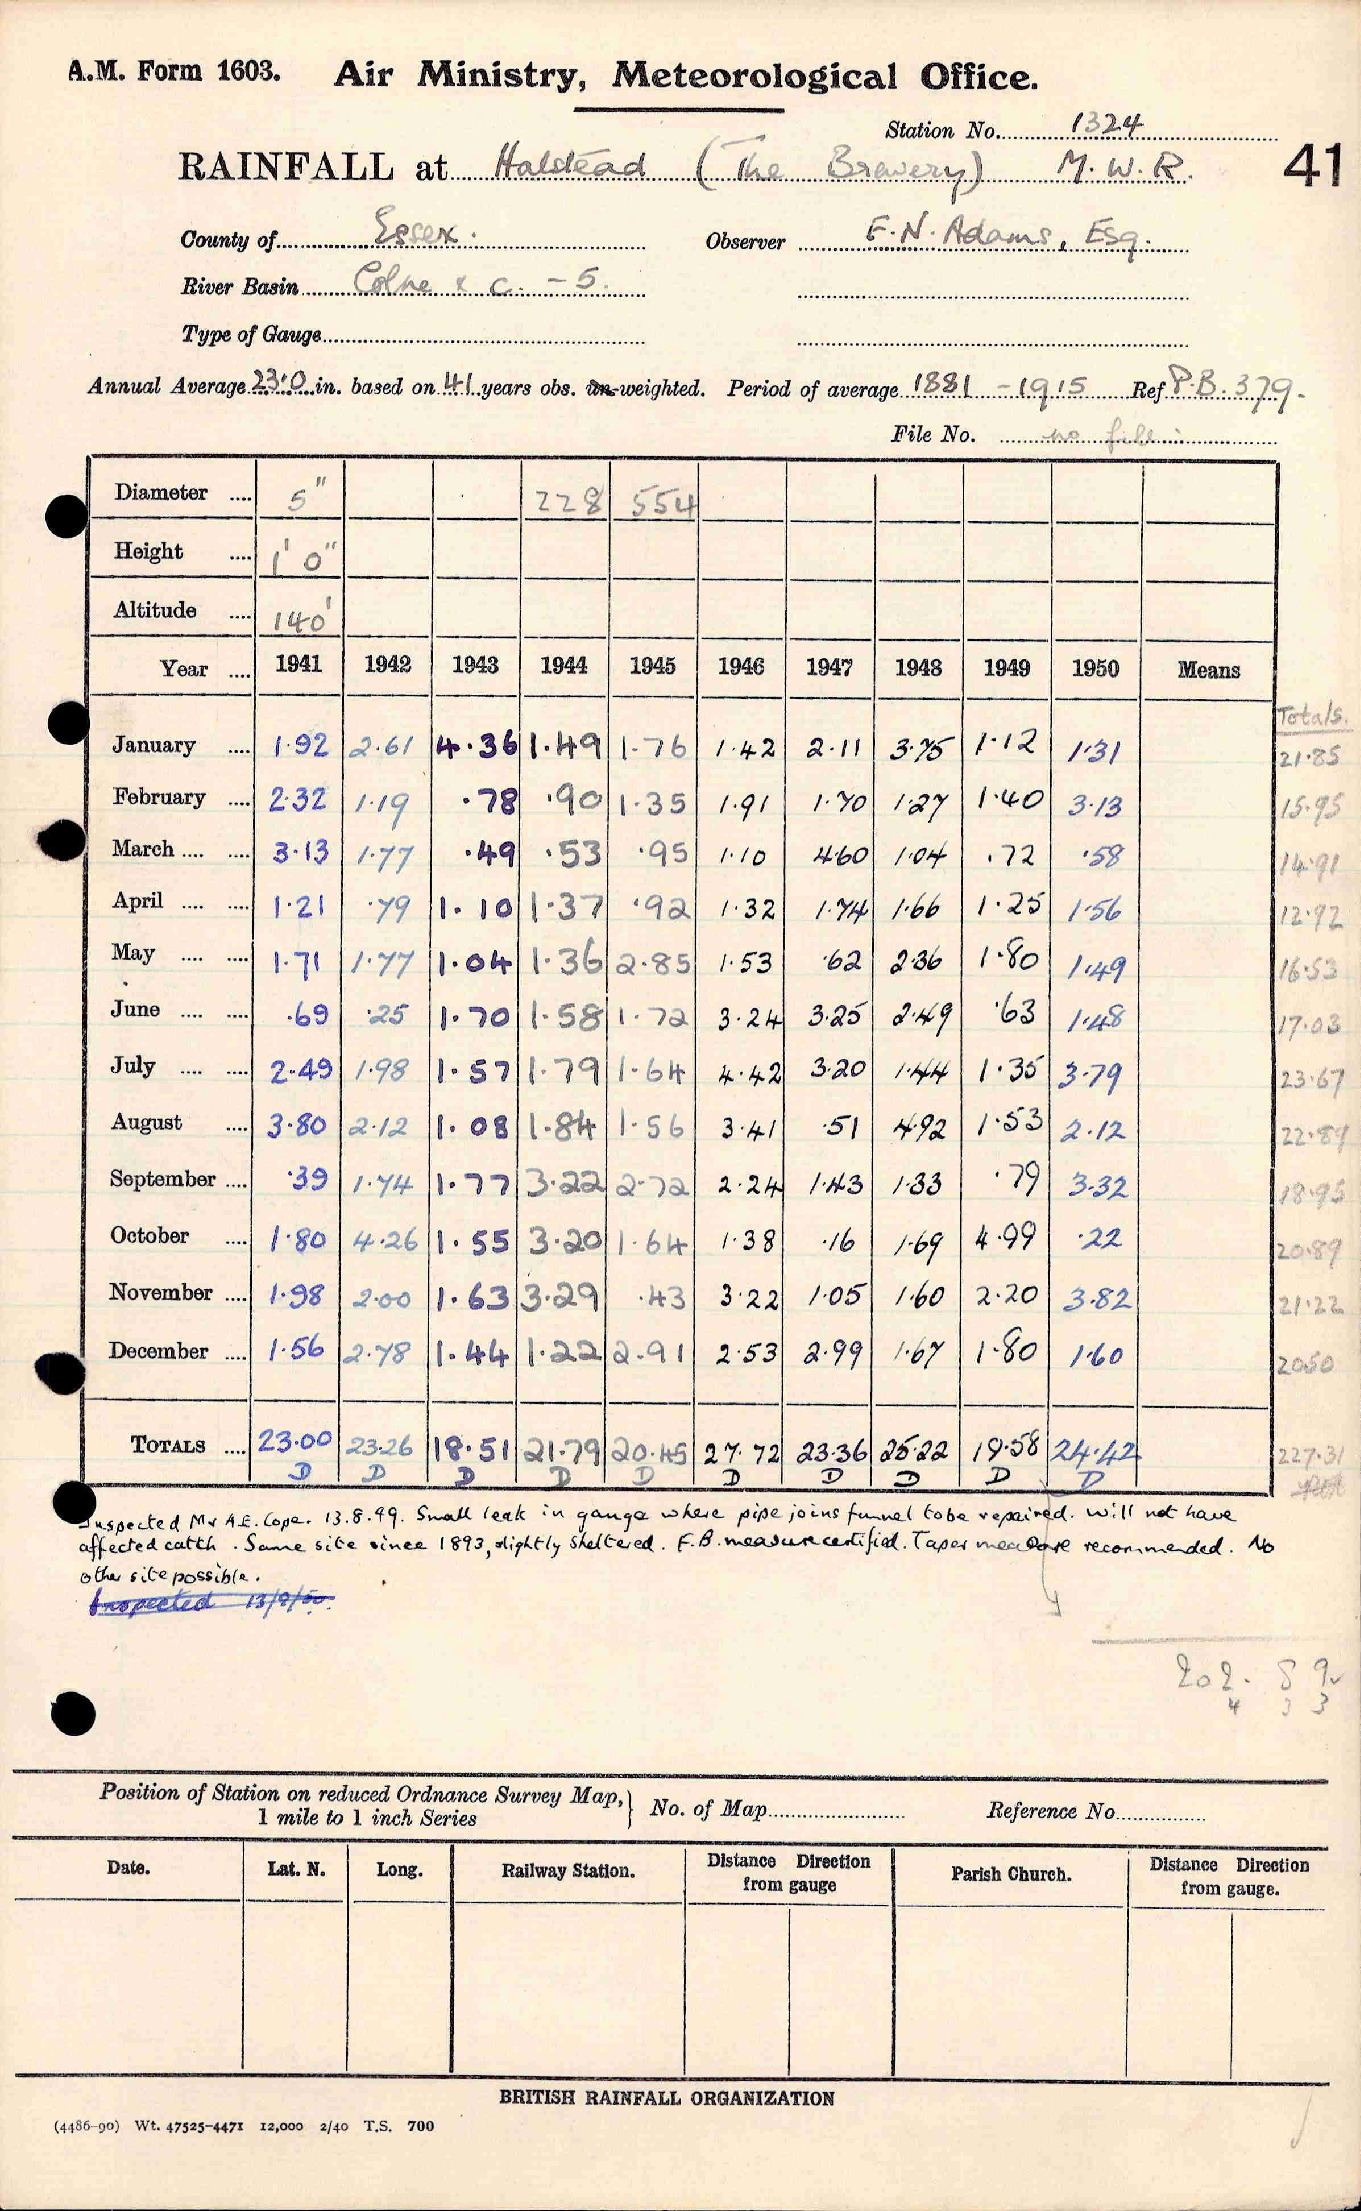 A.M. Form 1603. Air Ministry, Meteorological Office.
Station No. 1324
RAINFALL at Halstead (The Brewery) M.W.R. 41
County of Essex. Observer F.N. Adams, Esq.
River Basin Colne & c. - 5.
Type of Gauge
Annual Average 23.0 in. based on 41 years obs. un-weighted. Period of average 1881 - 1915 Ref P.B. 379.
File No. no file
Diameter .... 5" 228 554
Height .... 1' 0"
Altitude .... 140'
Year .... 1941 1942 1943 1944 1945 1946 1947 1948 1949 1950 Means
Totals.
January .... 1.92 2.61 4.36 1.49 1.76 1.42 2.11 3.75 1.12 1.31 21.85
February .... 2.32 1.19 .78 .90 1.35 1.91 1.70 1.27 1.40 3.13 15.95
March .... .... 3.13 1.77 .49 .53 .95 1.10 4.60 1.04 .72 .58 14.91
April .... .... 1.21 .79 1.10 1.37 .92 1.32 1.74 1.66 1.25 1.56 12.92
May .... .... 1.71 1.77 1.04 1.36 2.85 1.53 .62 2.36 1.80 1.49 16.53
June .... .... .69 .25 1.70 1.58 1.72 3.24 3.25 2.49 .63 1.48 17.03
July .... .... 2.49 1.98 1.57 1.79 1.64 4.42 3.20 1.44 1.35 3.79 23.67
August .... 3.80 2.12 1.08 1.84 1.56 3.41 .51 4.92 1.53 2.12 22.89
September .... .39 1.74 1.77 3.22 2.72 2.24 1.43 1.33 .79 3.32 18.95
October .... 1.80 4.26 1.55 3.20 1.64 1.38 .16 1.69 4.99 .22 20.89
November .... 1.98 2.00 1.63 3.29 .43 3.22 1.05 1.60 2.20 3.82 21.22
December .... 1.56 2.78 1.44 1.22 2.91 2.53 2.99 1.67 1.80 1.60 20.50
TOTALS .... 23.00 23.26 18.51 21.79 20.45 27.72 23.36 25.22 19.58 24.42 227.31
D D D D D D D D D D
Inspected Mr A.E. Cope. 13.8.49. Small leak in gauge where pipe joins funnel to be repaired. Will not have
affected catch. Same site since 1893, slightly sheltered. F.B. measure certified. Taper measure recommended. No
other site possible.
Inspected 13/8/50.
202. 89
4 3 3
Position of Station on reduced Ordnance Survey Map, } No. of Map Reference No.
1 mile to 1 inch Series
Date. Lat. N. Long. Railway Station. Distance Direction from gauge Parish Church. Distance Direction from gauge.
BRITISH RAINFALL ORGANIZATION
(4486-90) Wt. 47525-4471 12,000 2/40 T.S. 700